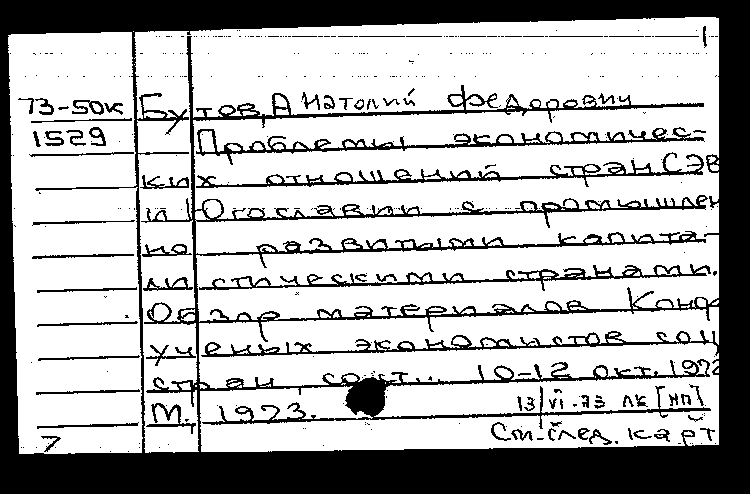 1
73-50к Бутов, Анатолий Федорович
1529 Проблемы экономичес-
ких отношений стран СЭВ
и Югославии с промышлен
но развитыми капита-
листическими странами.
Обзор материалов Конф
ученых экономистов соц
стран, сост... 10-12 окт. 1972
М., 1973. 13/VI-73 ЛК [НП]
7 См. след. карт